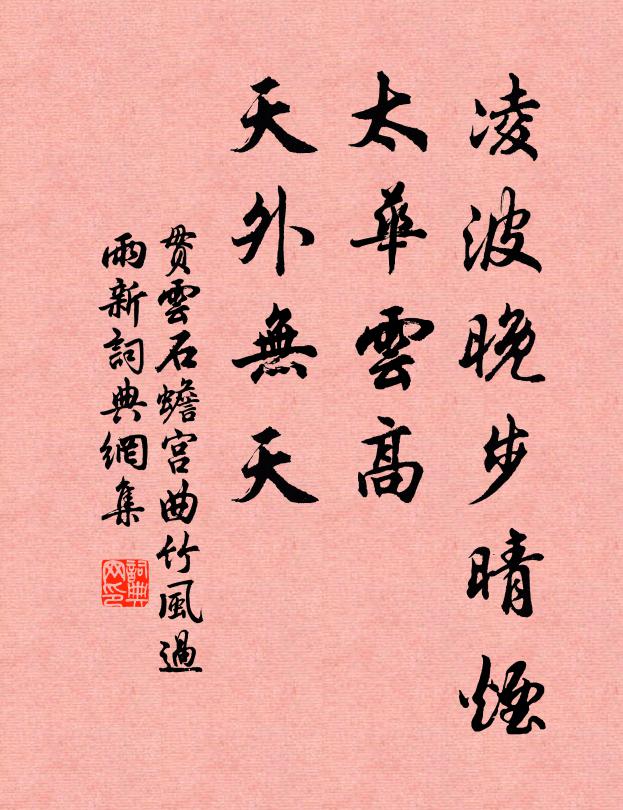 凌波晚步晴煙
太華雲高
天外無天
贯雲石蟾宫曲竹風過
雨新詞典網集
詞典
网印